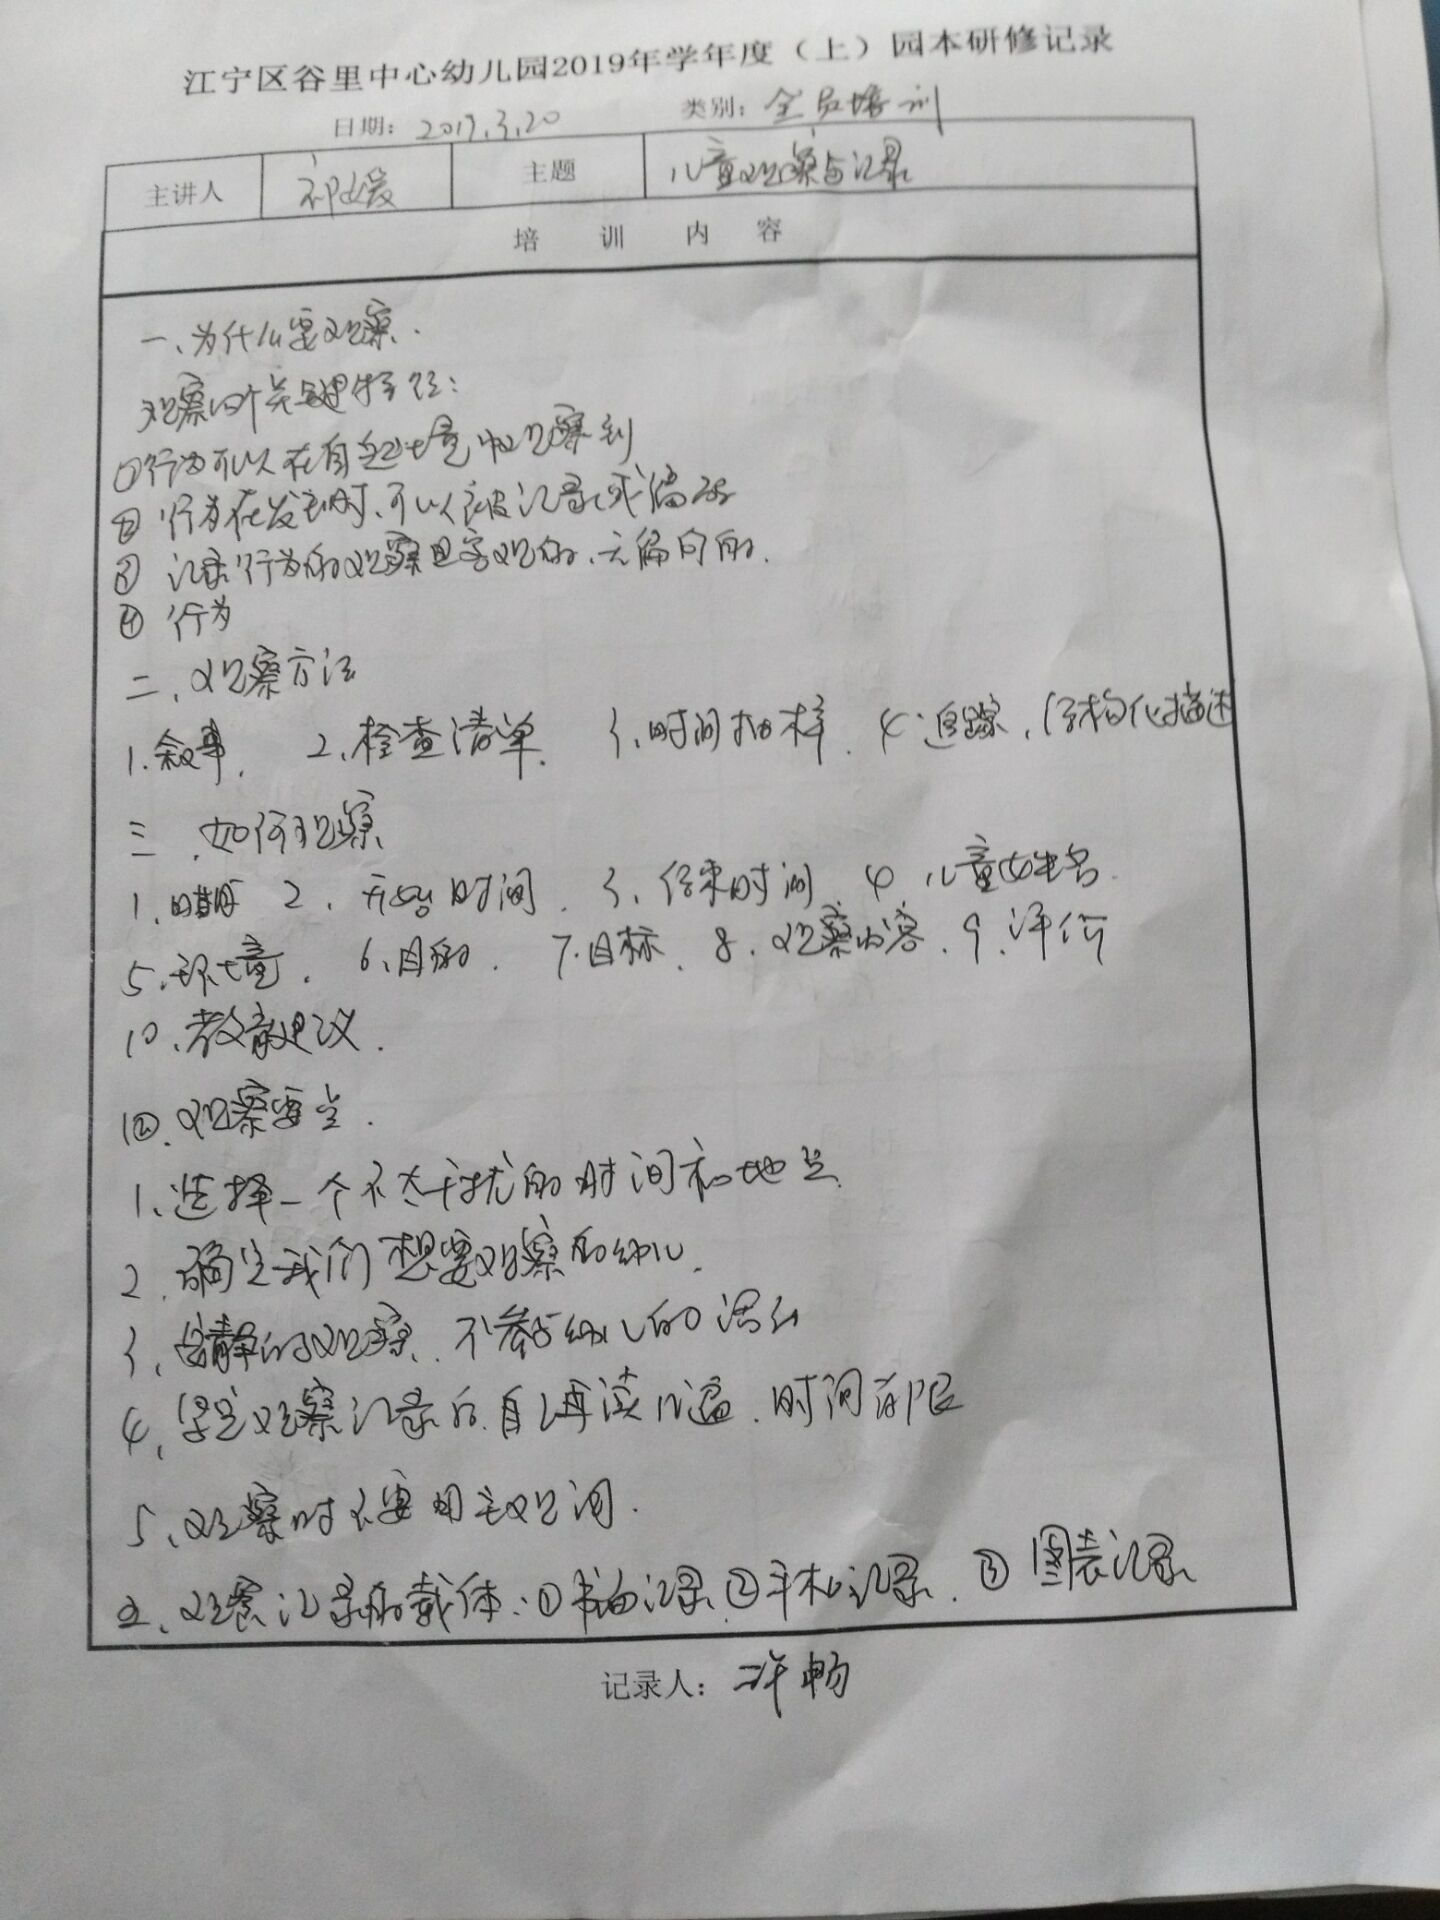 江宁区谷里中心幼儿园2019年学年度（上）园本研修记录
日期：2019.3.20 类别：全员培训
主讲人 祁媛 主题 儿童观察与记录
培 训 内 容
一、为什么要观察.
观察四个关键特征：
①行为可以在自然环境中观察到
② 行为在发生时、可以被记录或编码
③ 记录行为的观察是客观的、无偏向的.
④ 行为
二、观察方法
1.叙事. 2、检查清单. 3、时间抽样. 4.追踪、结构化描述
三、如何观察
1、日期 2、开始时间. 3、结束时间 4 儿童姓名.
5、环境. 6、目的. 7.目标. 8、观察内容. 9、评价
10、教育建议.
四、观察要点.
1、选择一个不太干扰的时间和地点
2、确定我们想要观察的幼儿.
3、安静的观察、不参与幼儿的活动
4、写完观察记录后自己再读几遍、时间有限
5、观察时不要用主观词.
五、观察记录的载体：①书面记录 ②手机记录. ③ 图表记录
记录人：许畅